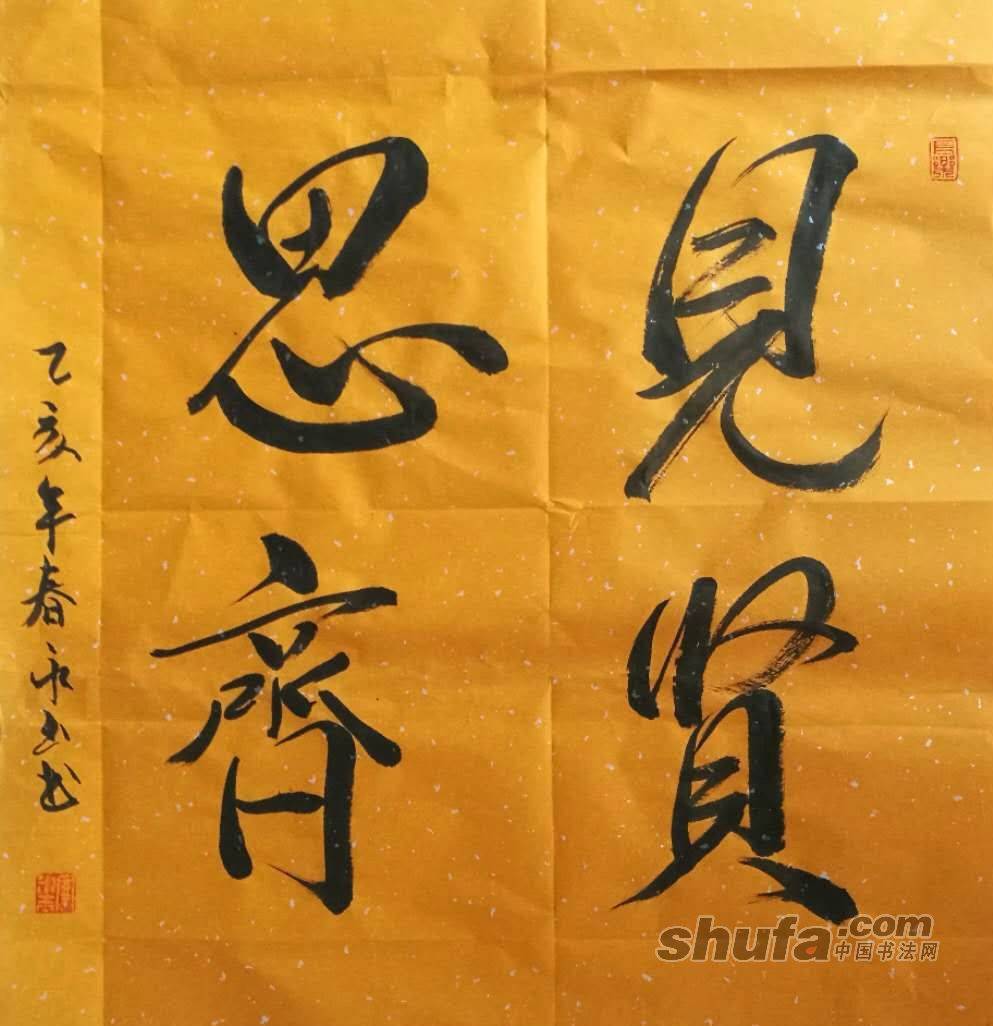 見賢
思齊
乙亥年春永山书
shufa.com
中国书法网